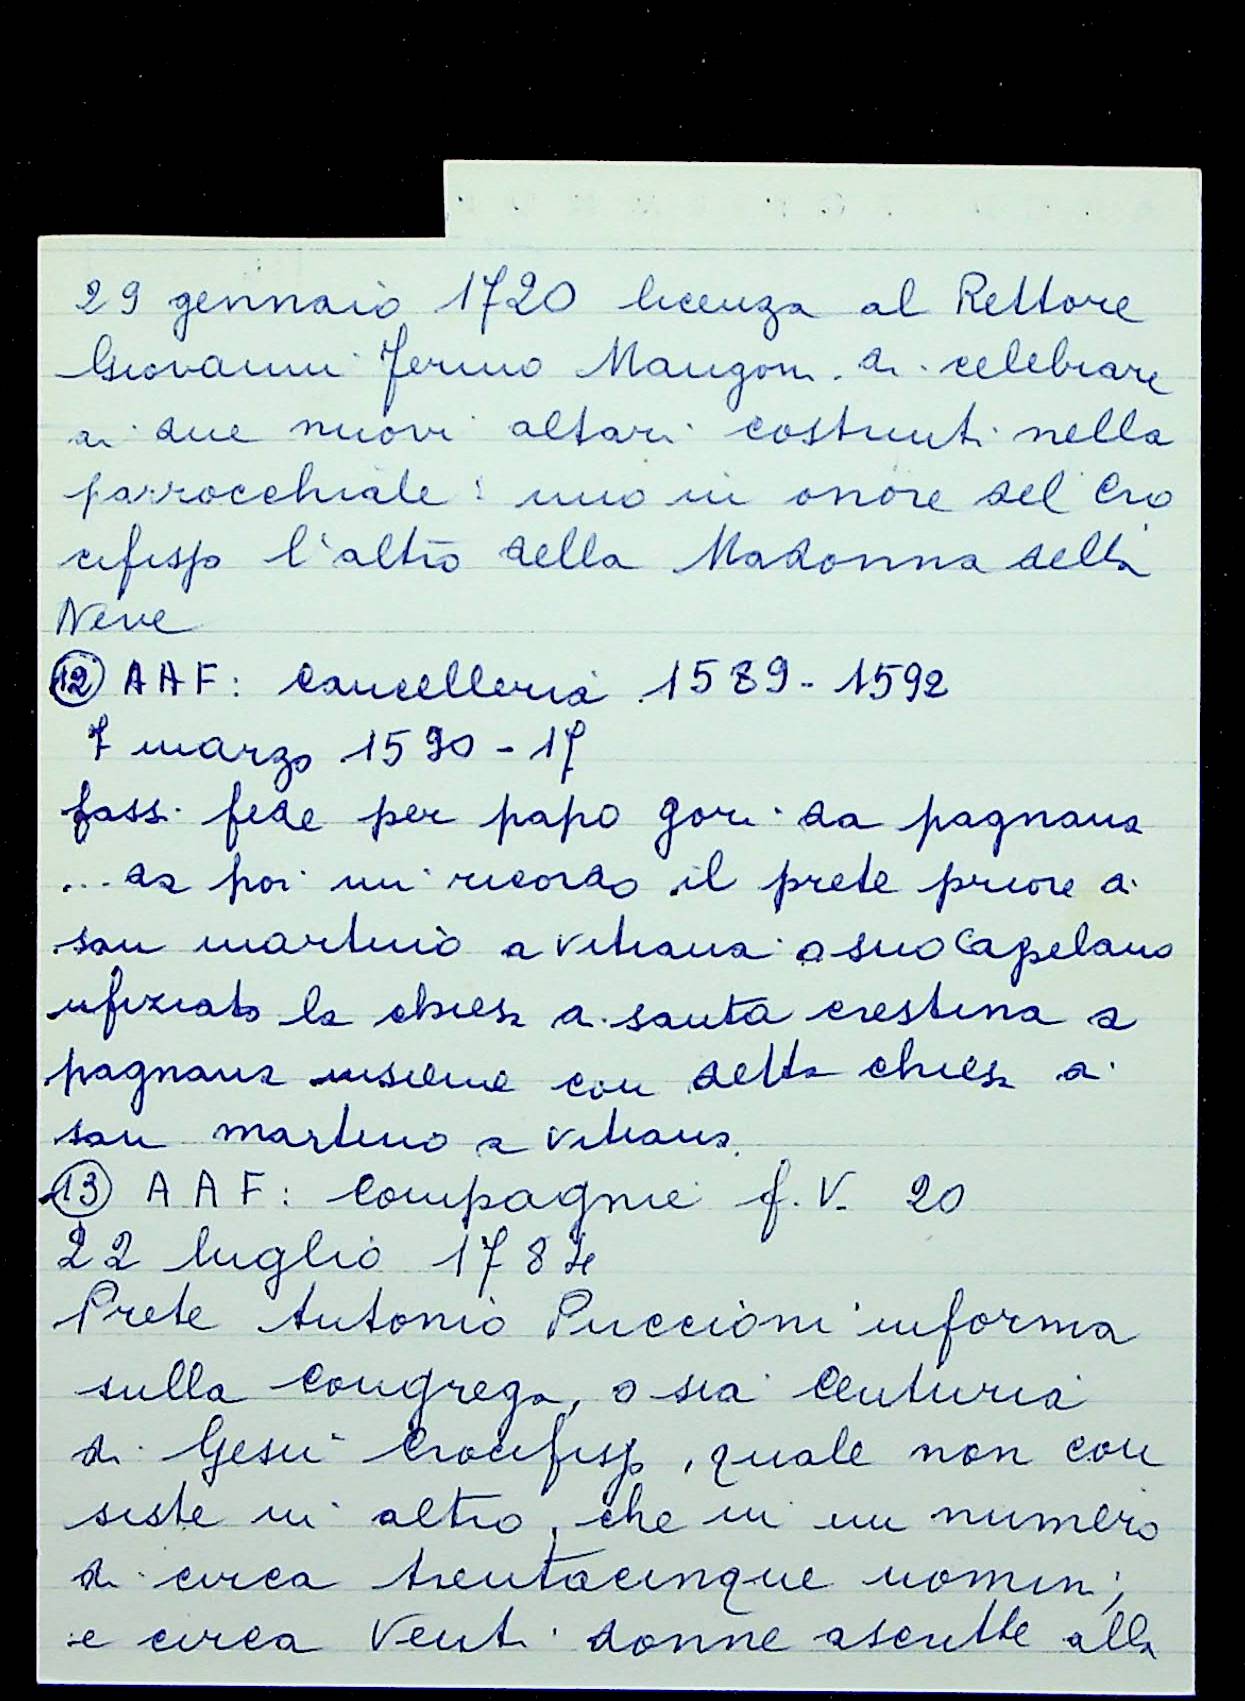 29 gennaio 1720 licenza al Rettore
Giovanni Fermo Mangoni di celebrare
ai due nuovi altari costruiti nella
parrocchiale: uno in onore del Cro
cifisso l'altro della Madonna della
Neve
12 AAF: Cancelleria 1589-1592
7 marzo 1590-17
fassi fede per papo gori da pagnana
... da poi mi ricordo il prete priore di
san martino a vitiana o suo Capelano
ufiziato la chiesa di santa crestina a
pagnana insieme con detta chiesa di
san martino a vitiana.
13 AAF: Compagnie f. V. 20
22 luglio 1784
Prete Antonio Puccioni informa
sulla Congrega, o sia Centuria
di Gesù Crocifisso, quale non con
siste in altro, che in un numero
di circa trentacinque uomini;
e circa Venti donne ascritte alla